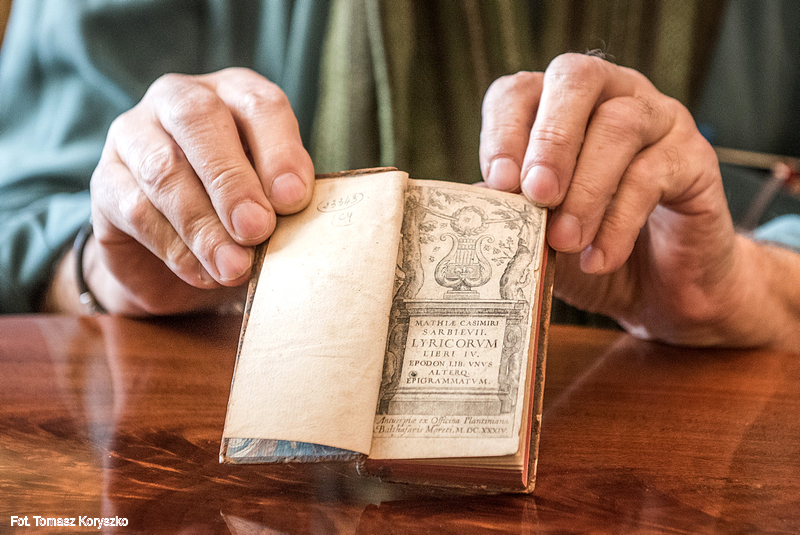 MATHIÆ CASIMIRI
SARBIEVII.
LYRICORVM
LIBRI IV.
EPODON LIB. VNVS
ALTERQ.
EPIGRAMMATVM.
Antuerpiæ ex Officina Plantiniana
Balthasaris Moreti. M. DC. XXXIV.
Fot. Tomasz Koryszko